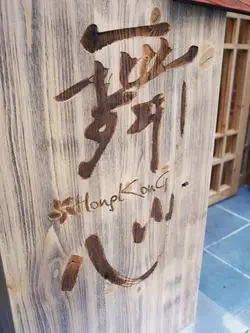 舞
HongKonG
心